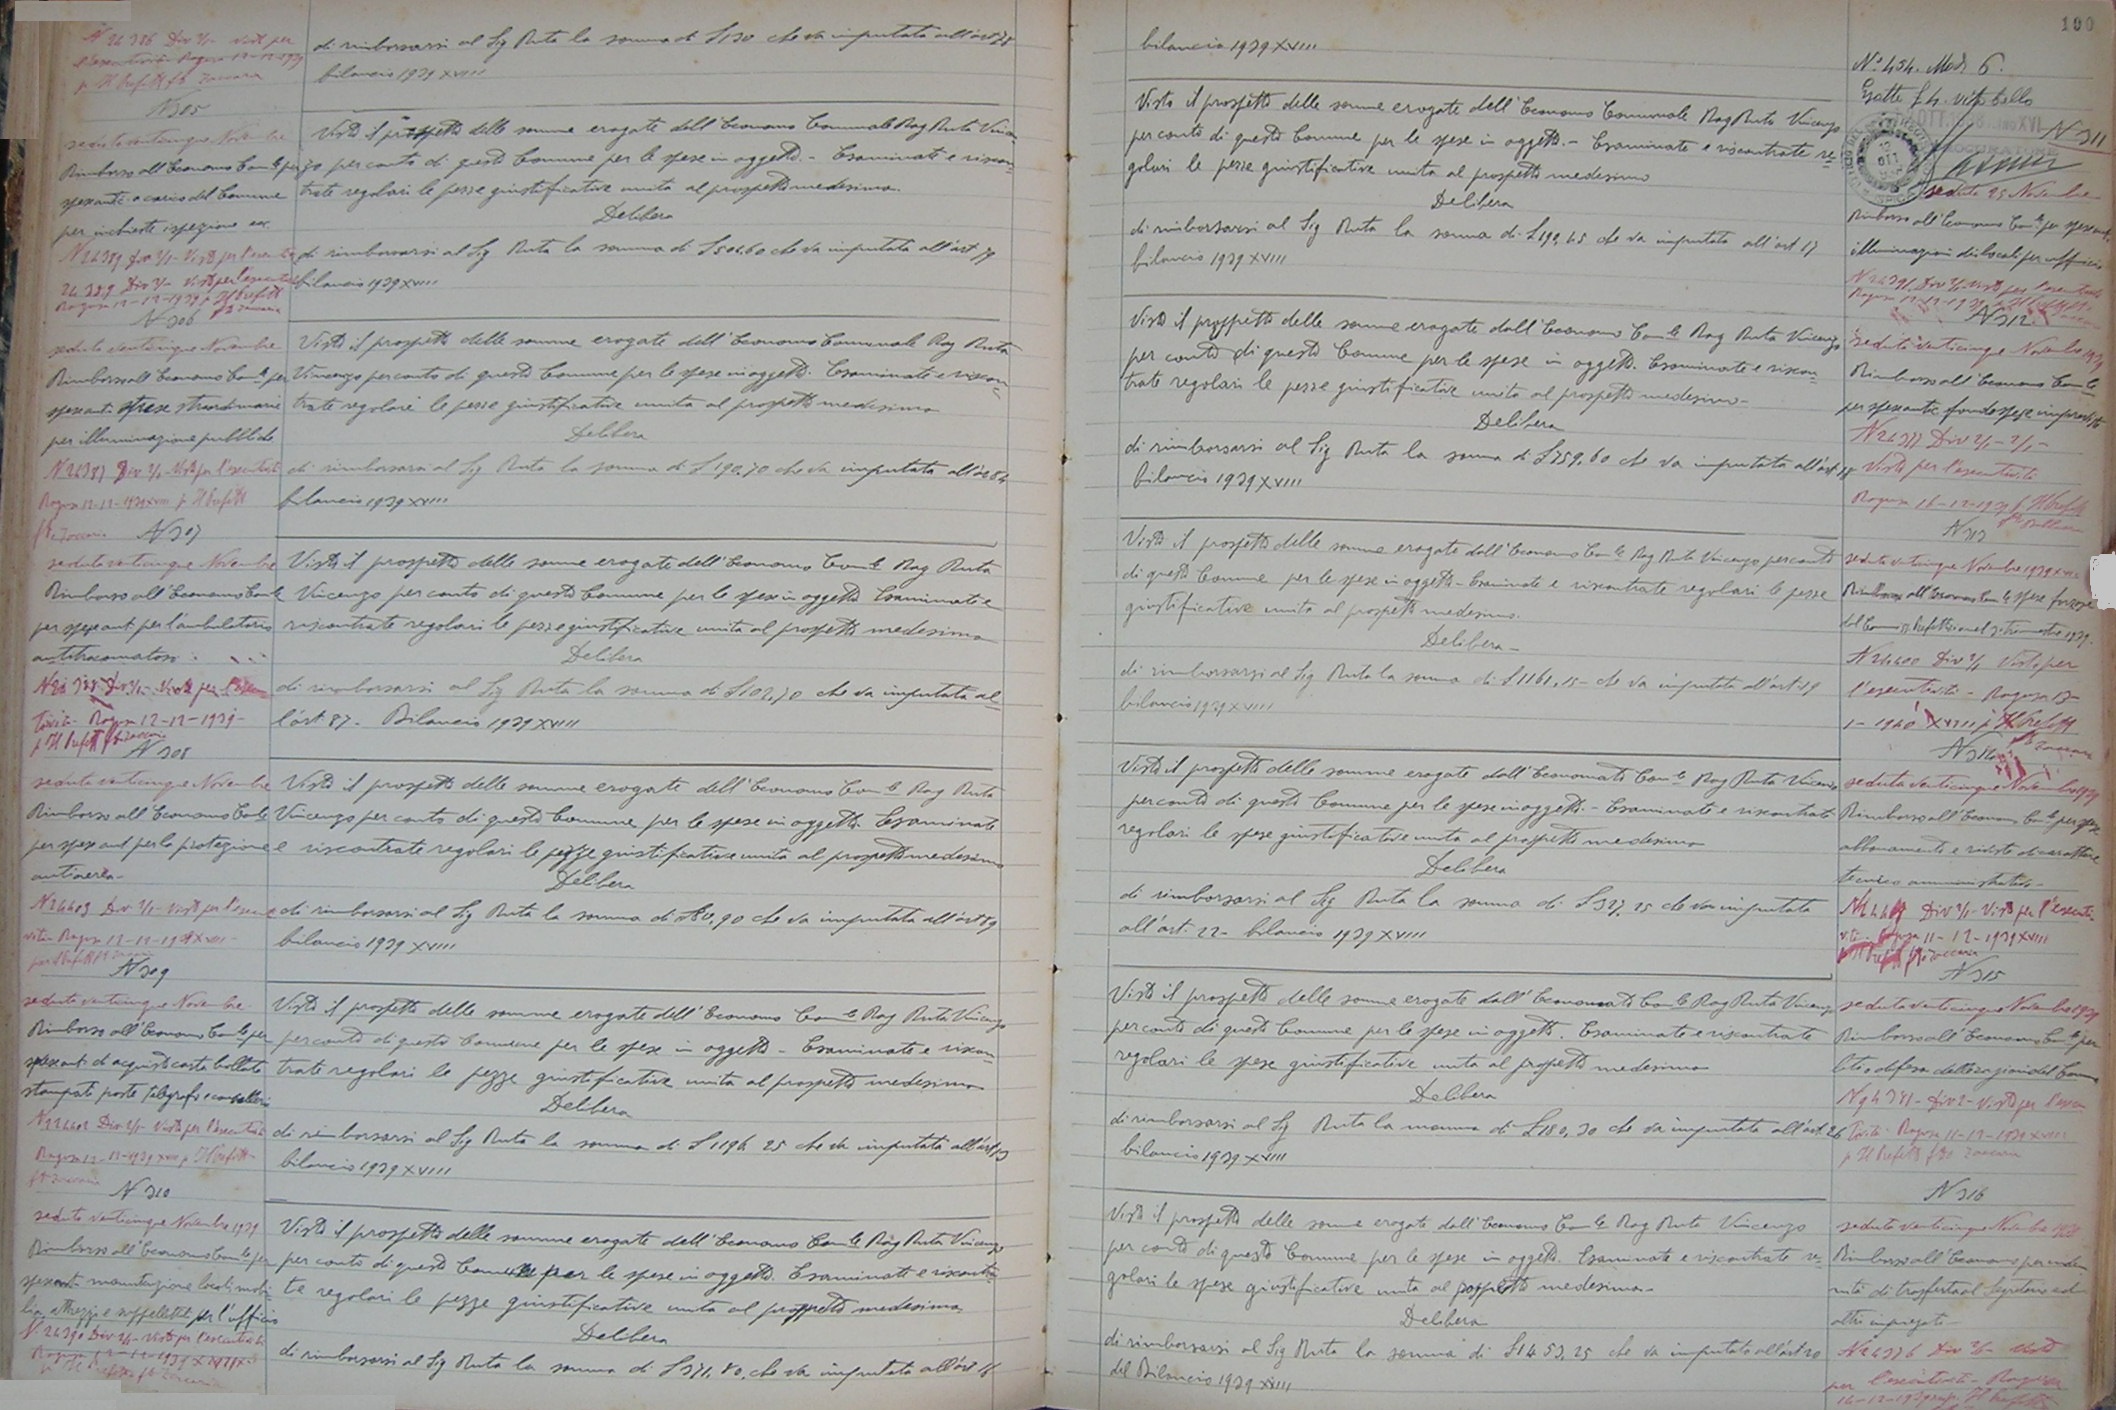 N 24386 Div 2/1 visto per
l'esecutività Ragusa 12-12-1939
p Il Prefetto fto Zaccaria
di rimborsarsi al Sig Ruta la somma di £130 che va imputata all'art 78
bilancio 1939 XVIII
N 305
seduta venticinque Novembre
Rimborso all'Economo Com.le per
spese ant. a carico del Comune
per inchieste ispezione ecc
N 24389 Div 2/1 Visto per l'esecutività
24389 Div 2/1 Visto per l'esecutività
Ragusa 12-12-1939 p Il Prefetto
fto Zaccaria
Visto il prospetto delle somme erogate dall'Economo Comunale Rag Ruta Vincen-
zo per conto di questo Comune per le spese in oggetto. - Esaminate e riscon-
trate regolari le pezze giustificative unite al prospetto medesimo.
Delibera
di rimborsarsi al Sig Ruta la somma di £504.60 che va imputata all'art 79
bilancio 1939 XVIII
N 306
seduta venticinque Novembre
Rimborso all'Economo Com.le per
spese ant. spese straordinarie
per illuminazione pubblica
N 24387 Div 2/1 Visto per l'esecutività
Ragusa 12-12-1939 XVIII p Il Prefetto
fto Zaccaria
Visto il prospetto delle somme erogate dall'Economo Comunale Rag Ruta
Vincenzo per conto di questo Comune per le spese in oggetto. Esaminate e riscon-
trate regolari le pezze giustificative unite al prospetto medesimo
Delibera
di rimborsarsi al Sig Ruta la somma di £190,70 che va imputata all'art 84
bilancio 1939 XVIII
N 307
seduta venticinque Novembre
Rimborso all'Economo Com.le
per spese ant. per l'ambulatorio
antitracomatoso.
Div 2/1 - Visto per l'esecu-
tività - Ragusa 12-12-1939-
p Il Prefetto fto Zaccaria
Visto il prospetto delle somme erogate dall'Economo Com.le Rag Ruta
Vincenzo per conto di questo Comune per le spese in oggetto Esaminate e
riscontrate regolari le pezze giustificative unite al prospetto medesimo
Delibera
di rimborsarsi al Sig Ruta la somma di £102,70 che va imputata al-
l'art. 87 - Bilancio 1939 XVIII
N 308
seduta venticinque Novembre
Rimborso all'Economo Com.le
per spese ant. per la protezione
antiaerea -
N 24403 Div 2/1 - Visto per l'esecu-
tività - Ragusa 12-12-1939 XVIII -
per Il Prefetto fto Zaccaria
Visto il prospetto delle somme erogate dall'Economo Com.le Rag Ruta
Vincenzo per conto di questo Comune per le spese in oggetto. Esaminate
e riscontrate regolari le pezze giustificative unite al prospetto medesimo
Delibera
di rimborsarsi al Sig Ruta la somma di £80,90 che va imputata all'art 59
bilancio 1939 XVIII
N 309
seduta venticinque Novembre
Rimborso all'Economo Com.le per
spese ant. di acquisto carta bollata
stampati poste telegrafo e cancelleria
Div 2/1 - Visto per l'esecutività
Ragusa 12-12-1939 XVIII p Il Prefetto
fto Zaccaria
Visto il prospetto delle somme erogate dall'Economo Com.le Rag Ruta Vincenzo
per conto di questo Comune per le spese in oggetto - Esaminate e riscon-
trate regolari le pezze giustificative unite al prospetto medesimo
Delibera
di rimborsarsi al Sig Ruta la somma di £1196.25 che va imputata all'art 13
bilancio 1939 XVIII
N 310
seduta venticinque Novembre 1939
Rimborso all'Economo Com.le per
spese ant. manutenzione locali mobi-
lia attrezzi e suppellettili per l'ufficio
N. 24390 Div 2/1 - Visto per l'esecutività
Ragusa 12-12-1939 XVIII
p Il Prefetto fto Zaccaria
Visto il prospetto delle somme erogate dall'Economo Com.le Rag Ruta Vincenzo
per conto di questo Comune per le spese in oggetto. Esaminate e riscontra-
te regolari le pezze giustificative unite al prospetto medesimo.
Delibera
di rimborsarsi al Sig Ruta la somma di £371,80, che va imputata all'art 16
190
bilancio 1939 XVIII
N° 454. Mod 6.
N 311
seduta 25 Novembre
Rimborso all'Economo Com.le per spese ant.
illuminazione dei locali per ufficio
N 24391 Div 2/1 Visto per l'esecutività
Ragusa 12-12-1939
Visto il prospetto delle somme erogate dall'Economo Comunale Rag Ruta Vincenzo
per conto di questo Comune per le spese in oggetto. - Esaminate e riscontrate re-
golari le pezze giustificative unite al prospetto medesimo
Delibera
di rimborsarsi al Sig Ruta la somma di £192,45 che va imputata all'art 17
bilancio 1939 XVIII
N 312
seduta venticinque Novembre 1939
Rimborso all'Economo Com.le
per spese ant. fondo spese impreviste
N 24377 Div 2/1 - 2/1 -
Visto per l'esecutività
Ragusa 16-12-1939 p Il Prefetto
Visto il prospetto delle somme erogate dall'Economo Com.le Rag Ruta Vincenzo
per conto di questo Comune per le spese in oggetto. Esaminate e riscon-
trate regolari le pezze giustificative unite al prospetto medesimo -
Delibera
di rimborsarsi al Sig Ruta la somma di £759,60 che va imputata all'art
bilancio 1939 XVIII
N 313
seduta venticinque Novembre 1939 XVIII
Rimborso all'Economo Com.le spese forzose
dal Commis. Prefettizio nel 3° Trimestre 1939.
N 24400 Div 2/1 Visto per
l'esecutività - Ragusa 13-
1-1940 XVIII p Il Prefetto
fto Zaccaria
Visto il prospetto delle somme erogate dall'Economo Com.le Rag Ruta Vincenzo per conto
di questo Comune per le spese in oggetto - Esaminate e riscontrate regolari le pezze
giustificative unite al prospetto medesimo.
Delibera -
di rimborsarsi al Sig Ruta la somma di £1161,15 - che va imputata all'art 19
bilancio 1939 XVIII
N 314
seduta venticinque Novembre 1939
Rimborso all'Economo Com.le per spese
abbonamento e riviste di carattere
tecnico amministrativo -
Div 2/1 - Visto per l'esecuti-
vità - Ragusa 11-12-1939 XVIII
p Il Prefetto fto Zaccaria
Visto il prospetto delle somme erogate dall'Economato Com.le Rag Ruta Vincenzo
per conto di questo Comune per le spese in oggetto. - Esaminate e riscontrate
regolari le spese giustificative unite al prospetto medesimo
Delibera
di rimborsarsi al Sig Ruta la somma di £327,25 che va imputata
all'art. 22 - bilancio 1939 XVIII
N 315
seduta venticinque Novembre 1939
Rimborso all'Economo Com.le per
lite e difesa delle ragioni del Comune
Div 2 - Visto per l'esecu-
tività - Ragusa 11-12-1939 XVIII
p Il Prefetto fto Zaccaria
Visto il prospetto delle somme erogate dall'Economato Com.le Rag Ruta Vincenzo
per conto di questo Comune per le spese in oggetto. Esaminate e riscontrate
regolari le spese giustificative unite al prospetto medesimo
Delibera
di rimborsarsi al Sig Ruta la somma di £180,30 che va imputata all'art 26
bilancio 1939 XVIII
N 316
seduta venticinque Novembre 1939
Rimborso all'Economo per inden-
nità di trasferta al Segretario ed
altri impiegati -
N 24376 Div 2/1 - Visto
per l'esecutività - Ragusa
Visto il prospetto delle somme erogate dall'Economo Com.le Rag Ruta Vincenzo
per conto di questo Comune per le spese in oggetto. Esaminate e riscontrate re-
golari le spese giustificative unite al prospetto medesimo -
Delibera
di rimborsarsi al Sig Ruta la somma di £1453,25 che va imputata all'art 20
del Bilancio 1939 XVIII